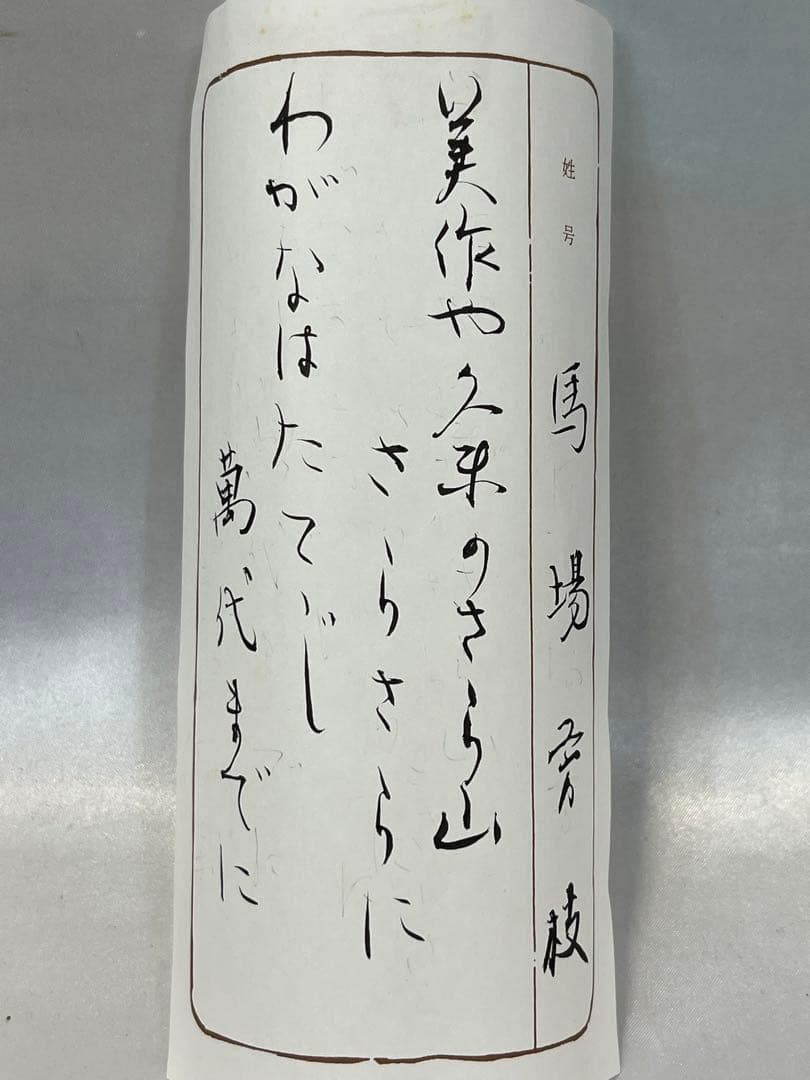 姓号 馬場 枝
美作や久米のさら山
さらさらに
わがなはたてじ
萬代までに